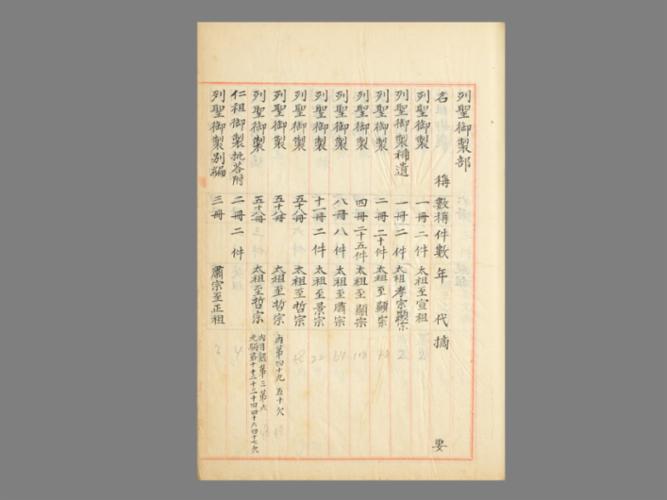 列聖御製部
名 稱 數稱 件數 年 代 摘 要
列聖御製 一冊 二件 太祖至宣祖
列聖御製補遺 一冊 二件 太祖孝宗顯宗
列聖御製 二冊 二十件 太祖至顯宗
列聖御製 四冊 二十五件 太祖至顯宗
列聖御製 八冊 八件 太祖至肅宗
列聖御製 十一冊 二件 太祖至景宗
列聖御製 太祖至哲宗
列聖御製 太祖至哲宗 內第四十九五十欠
列聖御製 太祖至哲宗
仁祖御製批答附 二冊 二件
列聖御製別編 三冊 肅宗至正祖